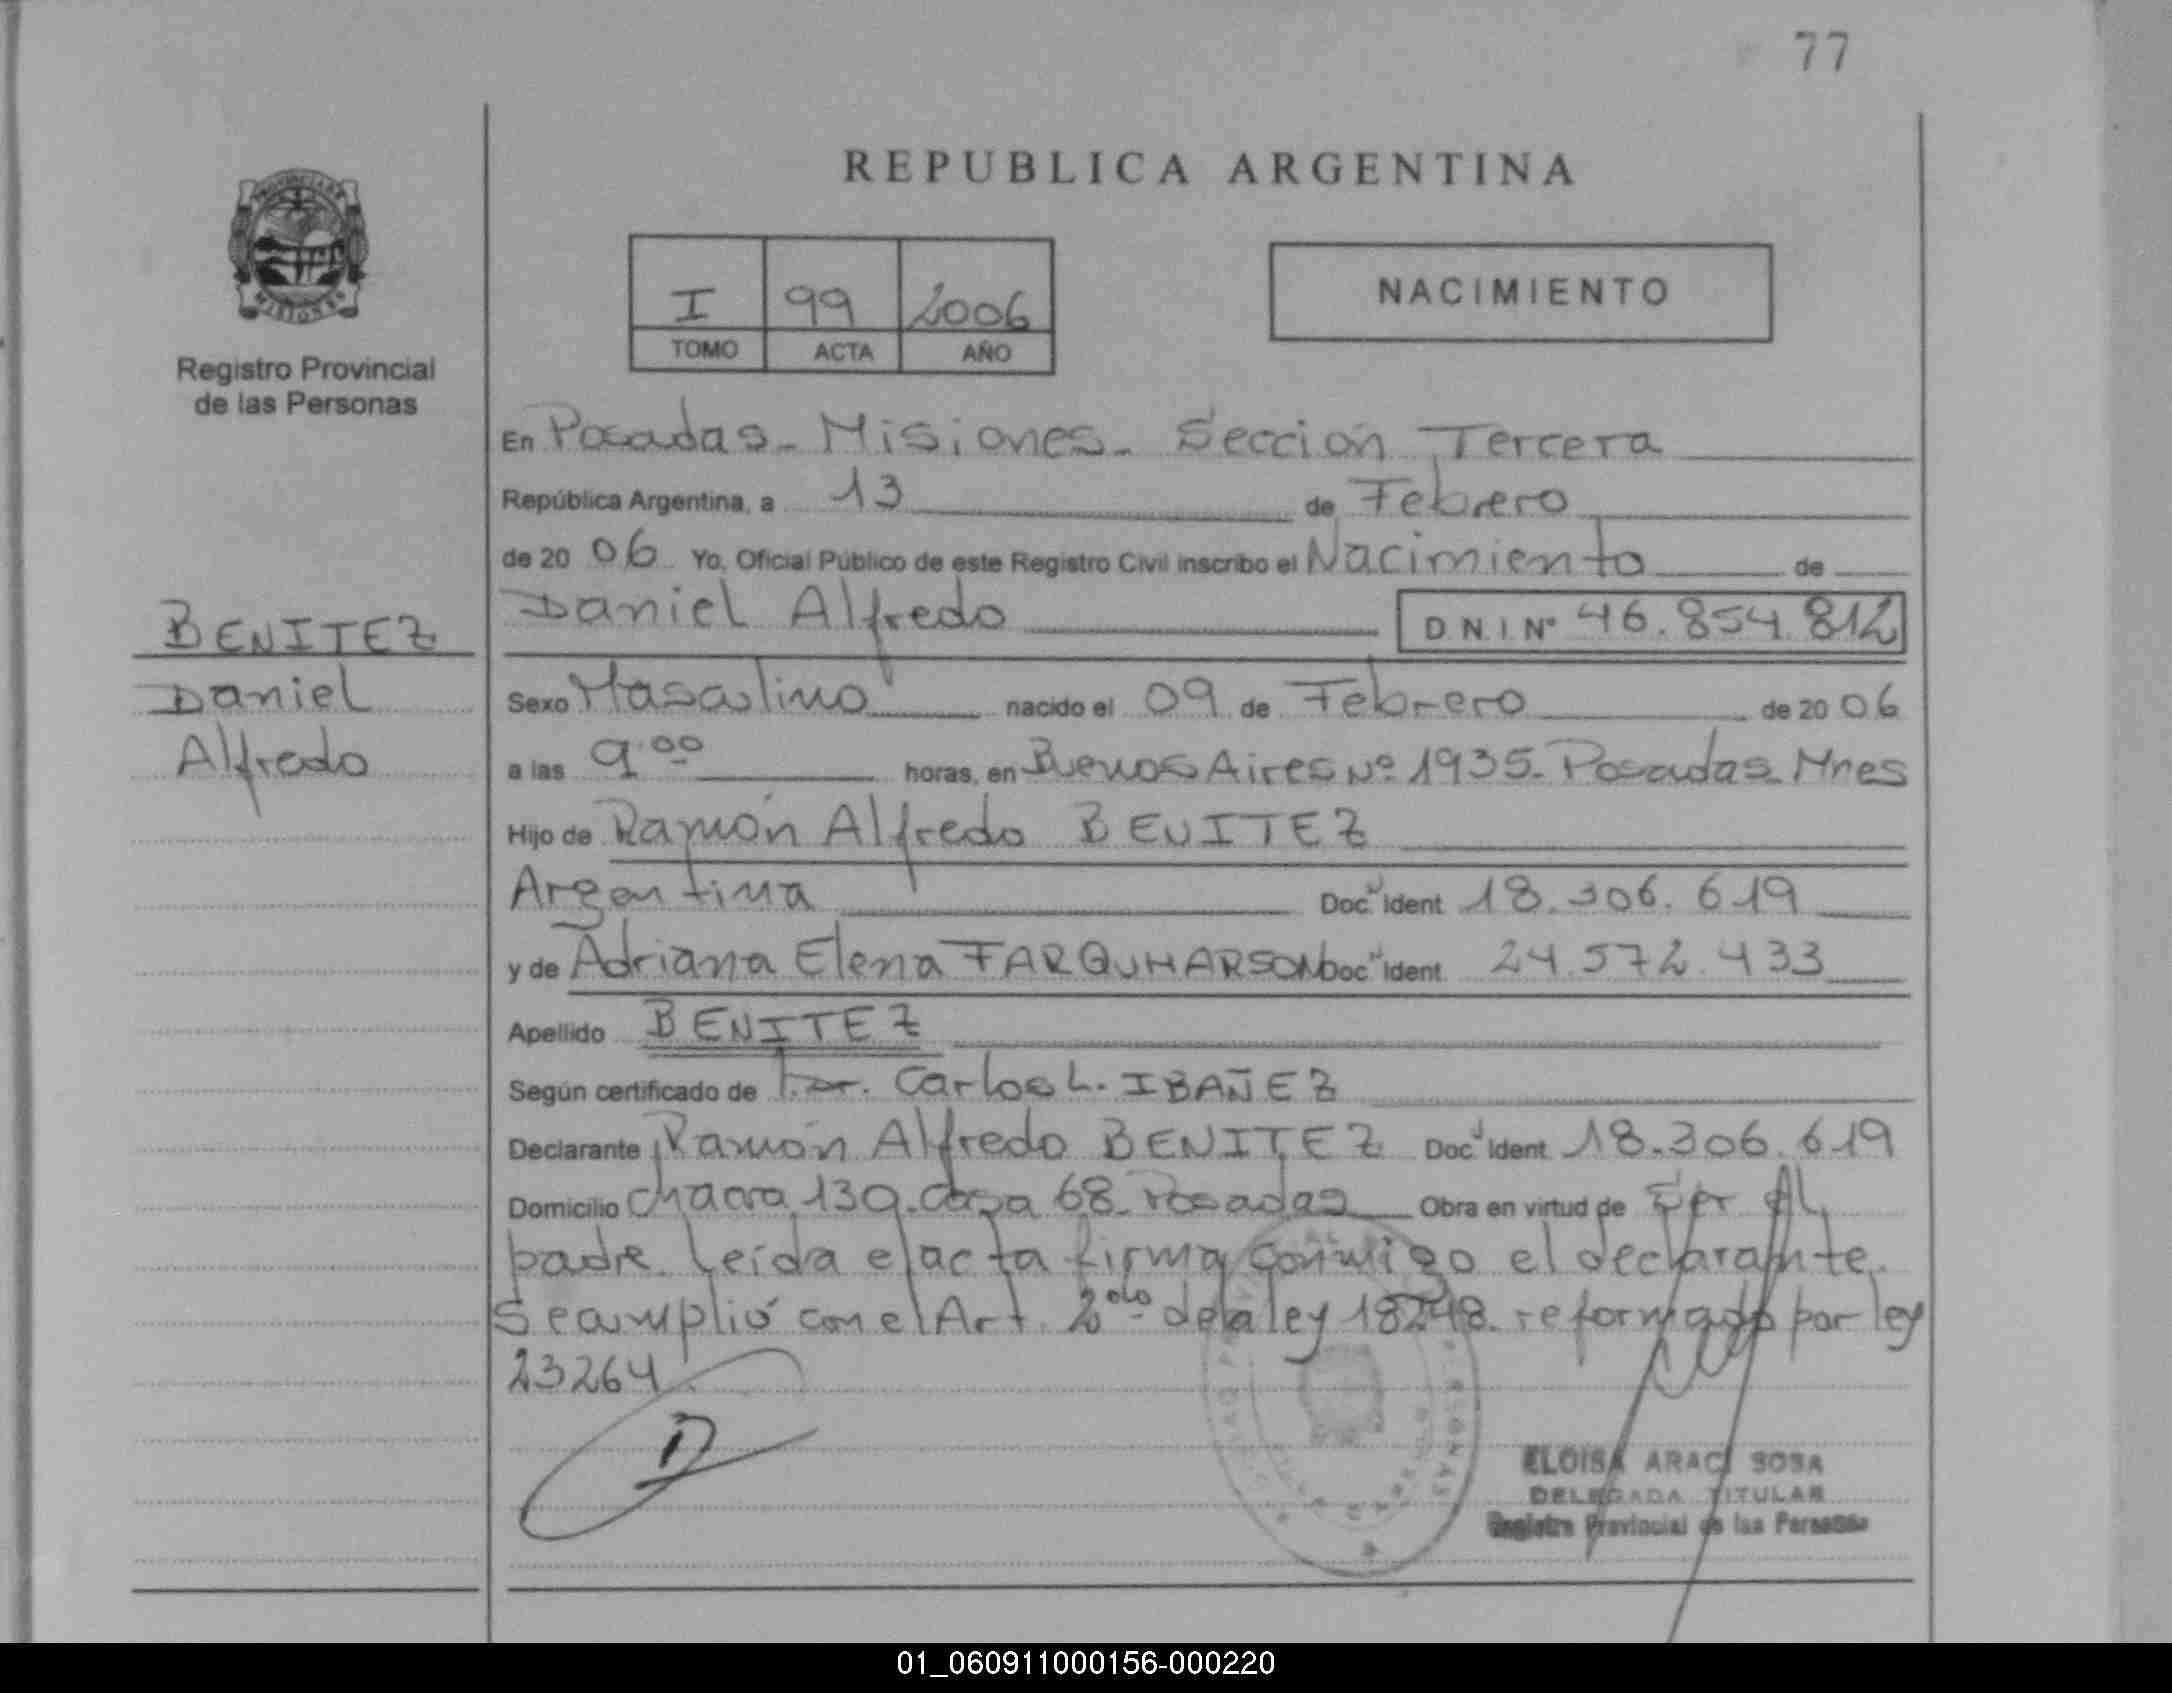 77
REPUBLICA ARGENTINA
PROVINCIA DE
MISIONES
Registro Provincial
de las Personas
I 99 2006
TOMO ACTA AÑO
NACIMIENTO
En Posadas - Misiones - Sección Tercera
República Argentina, a 13 de Febrero
de 20 06 Yo, Oficial Público de este Registro Civil inscribo el Nacimiento de
Daniel Alfredo D N I Nº 46.854.812
BENITEZ
Daniel
Alfredo
Sexo Masculino nacido el 09 de Febrero de 20 06
a las 9:00 horas, en Buenos Aires Nº 1935. Posadas Mnes
Hijo de Ramón Alfredo BENITEZ
Argentina Doc. Ident 18.306.619
y de Adriana Elena FARQUHARSON Doc. Ident. 24.572.433
Apellido BENITEZ
Según certificado de Carlos L. IBAÑEZ
Declarante Ramón Alfredo BENITEZ Doc. Ident 18.306.619
Domicilio chacra 139. casa 68 - Posadas Obra en virtud de ser el
padre. Leída el acta firma conmigo el declarante.
Se cumplió con el Art. 2do de la ley 18248. reformado por ley
23264.
ELOISA ARACI SOSA
DELEGADA TITULAR
Registro Provincial de las Personas
01_060911000156-000220